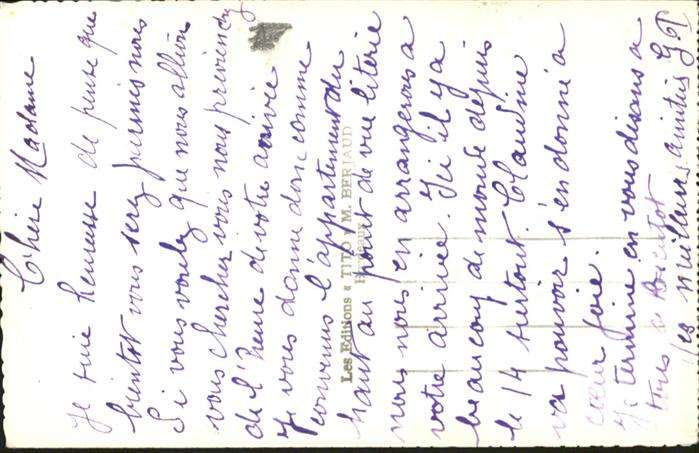 Chère Madame
Je suis heureuse de pense que
bientôt vous serez parmis nous
Si vous voulez que nous allions
vous chercher vous nous prviendrez
de l'heure de votre arrivée
Je vous donne donc comme
convenus l'appartement du
haut au point de vue literie
nous nous en arrangerons a
votre arrivée. Ici il y a
beaucoup de monde depuis
le 14 surtout. Claudine
va pouvoir s'en donné a
cœur joie.
Je termine en vous disans a
tous a Bientot
Les meilleurs amitiés G.P
Les Editions « TITO » M. BERJAUD
Bordeaux